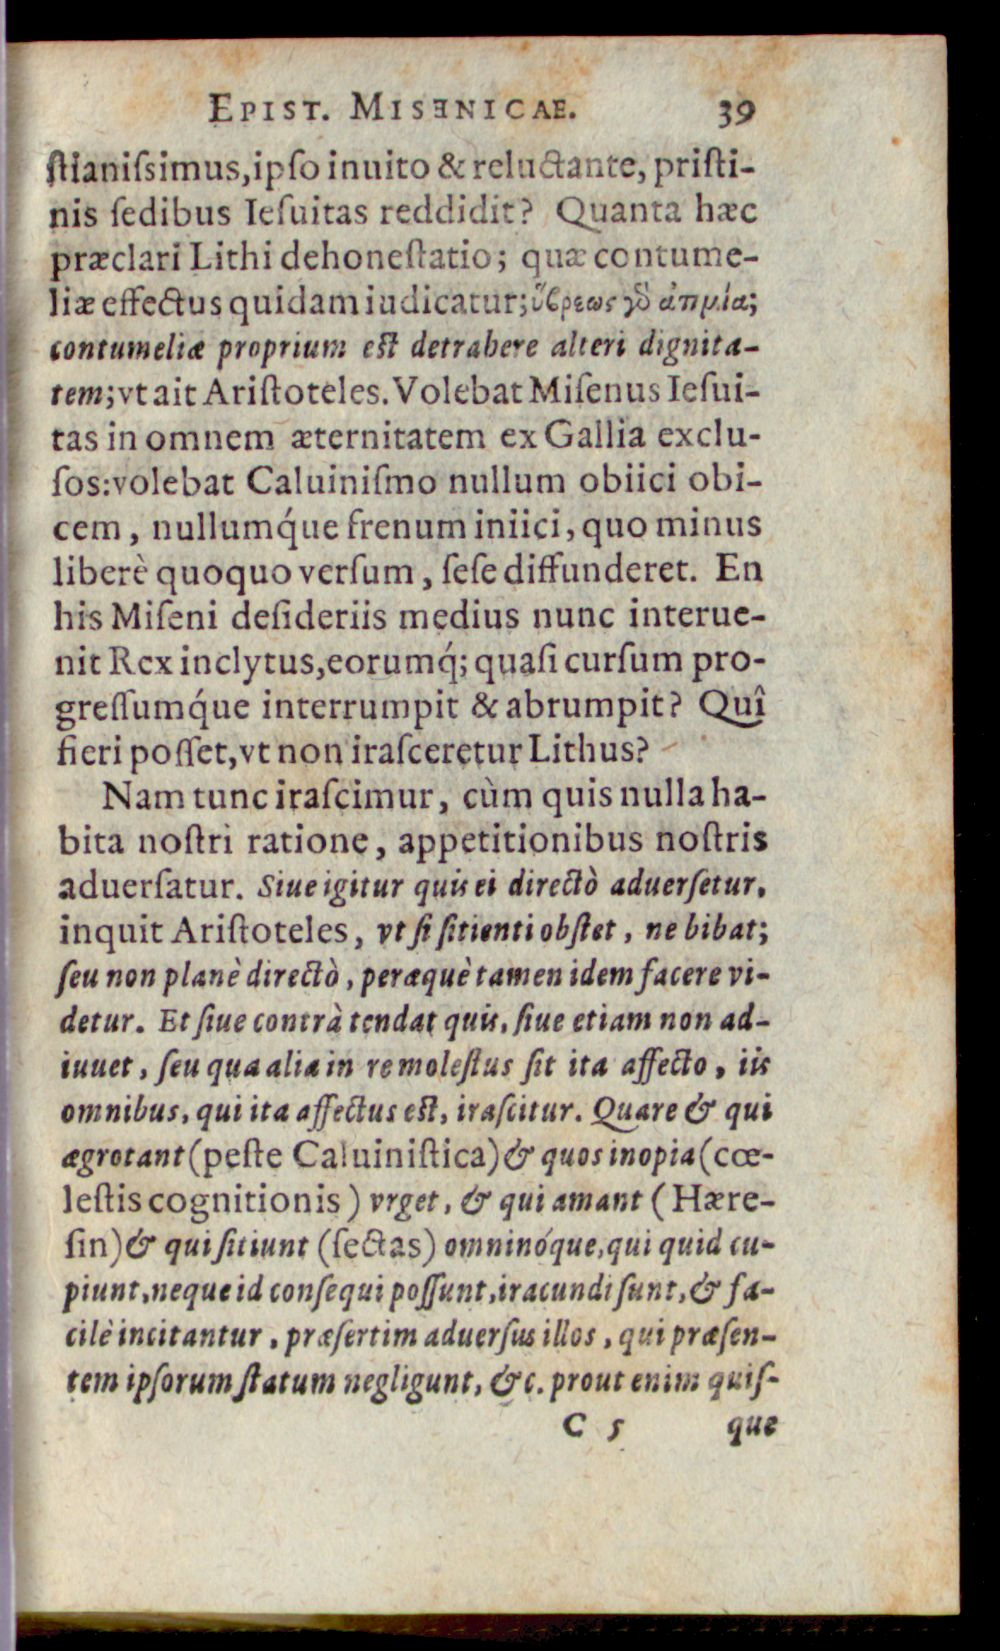 EPIST. MISƎNICAE. 39
ſtianiſsimus, ipſo inuito & reluctante, priſti-
nis ſedibus Ieſuitas reddidit? Quanta hæc
præclari Lithi dehoneſtatio; quæ contume-
liæ effectus quidam iudicatur; ὕβρεως γὸ ἀτιμία;
contumeliæ proprium eſt detrahere alteri dignita-
tem; vt ait Ariſtoteles. Volebat Miſenus Ieſui-
tas in omnem æternitatem ex Gallia exclu-
ſos: volebat Caluiniſmo nullum obiici obi-
cem, nullumq́ue frenum iniici, quo minus
liberè quoquo verſum, ſeſe diffunderet. En
his Miſeni deſideriis medius nunc interue-
nit Rex inclytus, eorumq́; quaſi curſum pro-
greſſumq́ue interrumpit & abrumpit? Quî
fieri poſſet, vt non iraſceretur Lithus?
Nam tunc iraſcimur, cùm quis nulla ha-
bita noſtri ratione, appetitionibus noſtris
aduerſatur. Siue igitur quis ei directò aduerſetur,
inquit Ariſtoteles, vt ſi ſitienti obſtet, ne bibat;
ſeu non planè directò, peræquè tamen idem facere vi-
detur. Et ſiue contrà tendat quis, ſiue etiam non ad-
iuuet, ſeu qua alia in re moleſtus ſit ita affecto, iis
omnibus, qui ita affectus eſt, iraſcitur. Quare & qui
ægrotant (peſte Caluiniſtica) & quos inopia (cœ-
leſtis cognitionis) vrget, & qui amant (Hære-
ſin) & qui ſitiunt (ſectas) omninóque, qui quid cu-
piunt, neque id conſequi poſſunt, iracundi ſunt, & fa-
cilè incitantur, præſertim aduerſus illos, qui præſen-
tem ipſorum ſtatum negligunt, &c. prout enim quiſ-
C 5 que